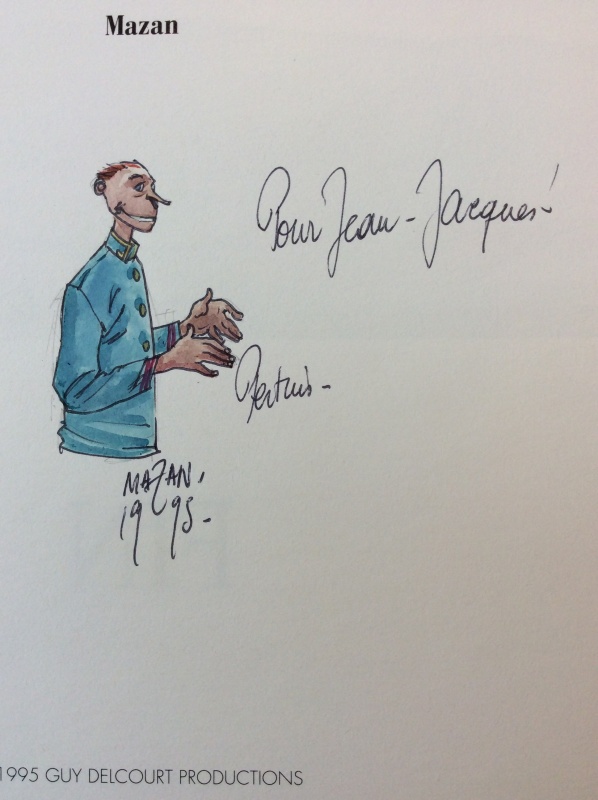 Mazan
Pour Jean-Jacques!
Pertuis-
MAZAN.
1995-
1995 GUY DELCOURT PRODUCTIONS